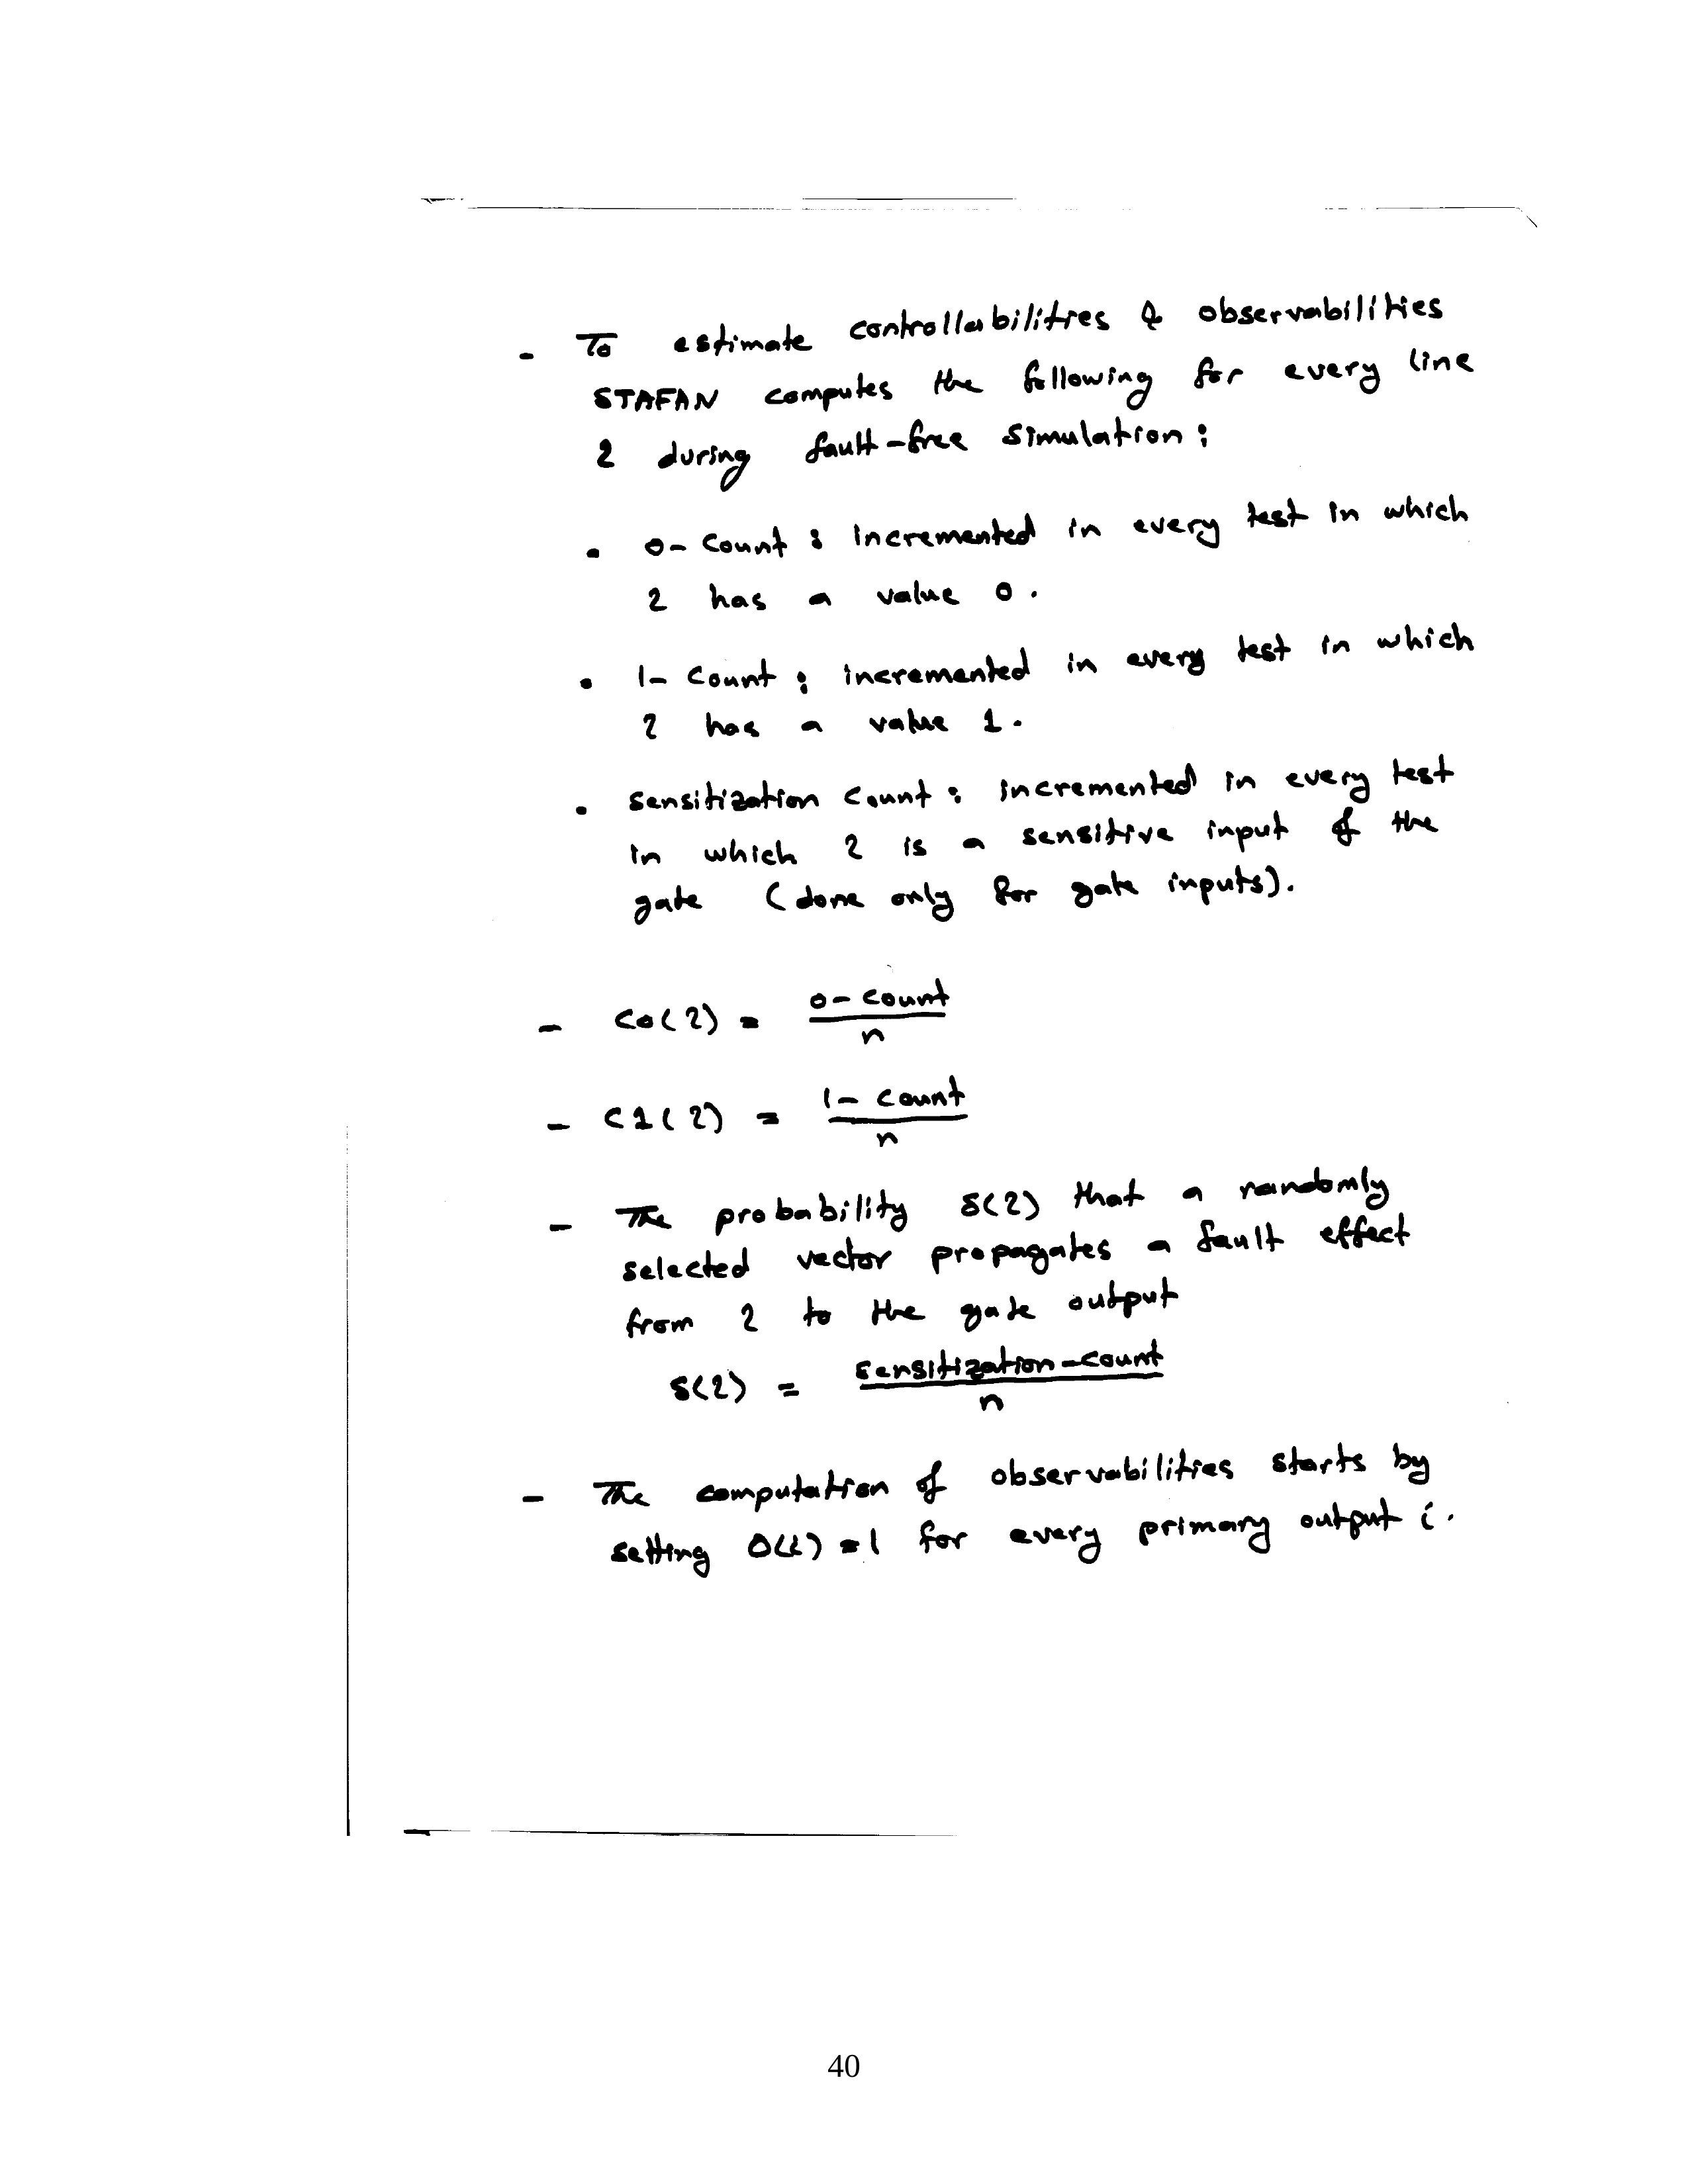 - To estimate controllabilities & observabilities
STAFAN computes the following for every line
l during fault-free simulation:
• 0-count : incremented in every test in which
l has a value 0.
• 1-count : incremented in every test in which
l has a value 1.
• sensitization count : incremented in every test
in which l is a sensitive input of the
gate (done only for gate inputs).
- C0(l) = 0-count / n
- C1(l) = 1-count / n
- The probability S(l) that a randomly
selected vector propagates a fault effect
from l to the gate output
S(l) = sensitization-count / n
- The computation of observabilities starts by
setting O(i) = 1 for every primary output i.
40